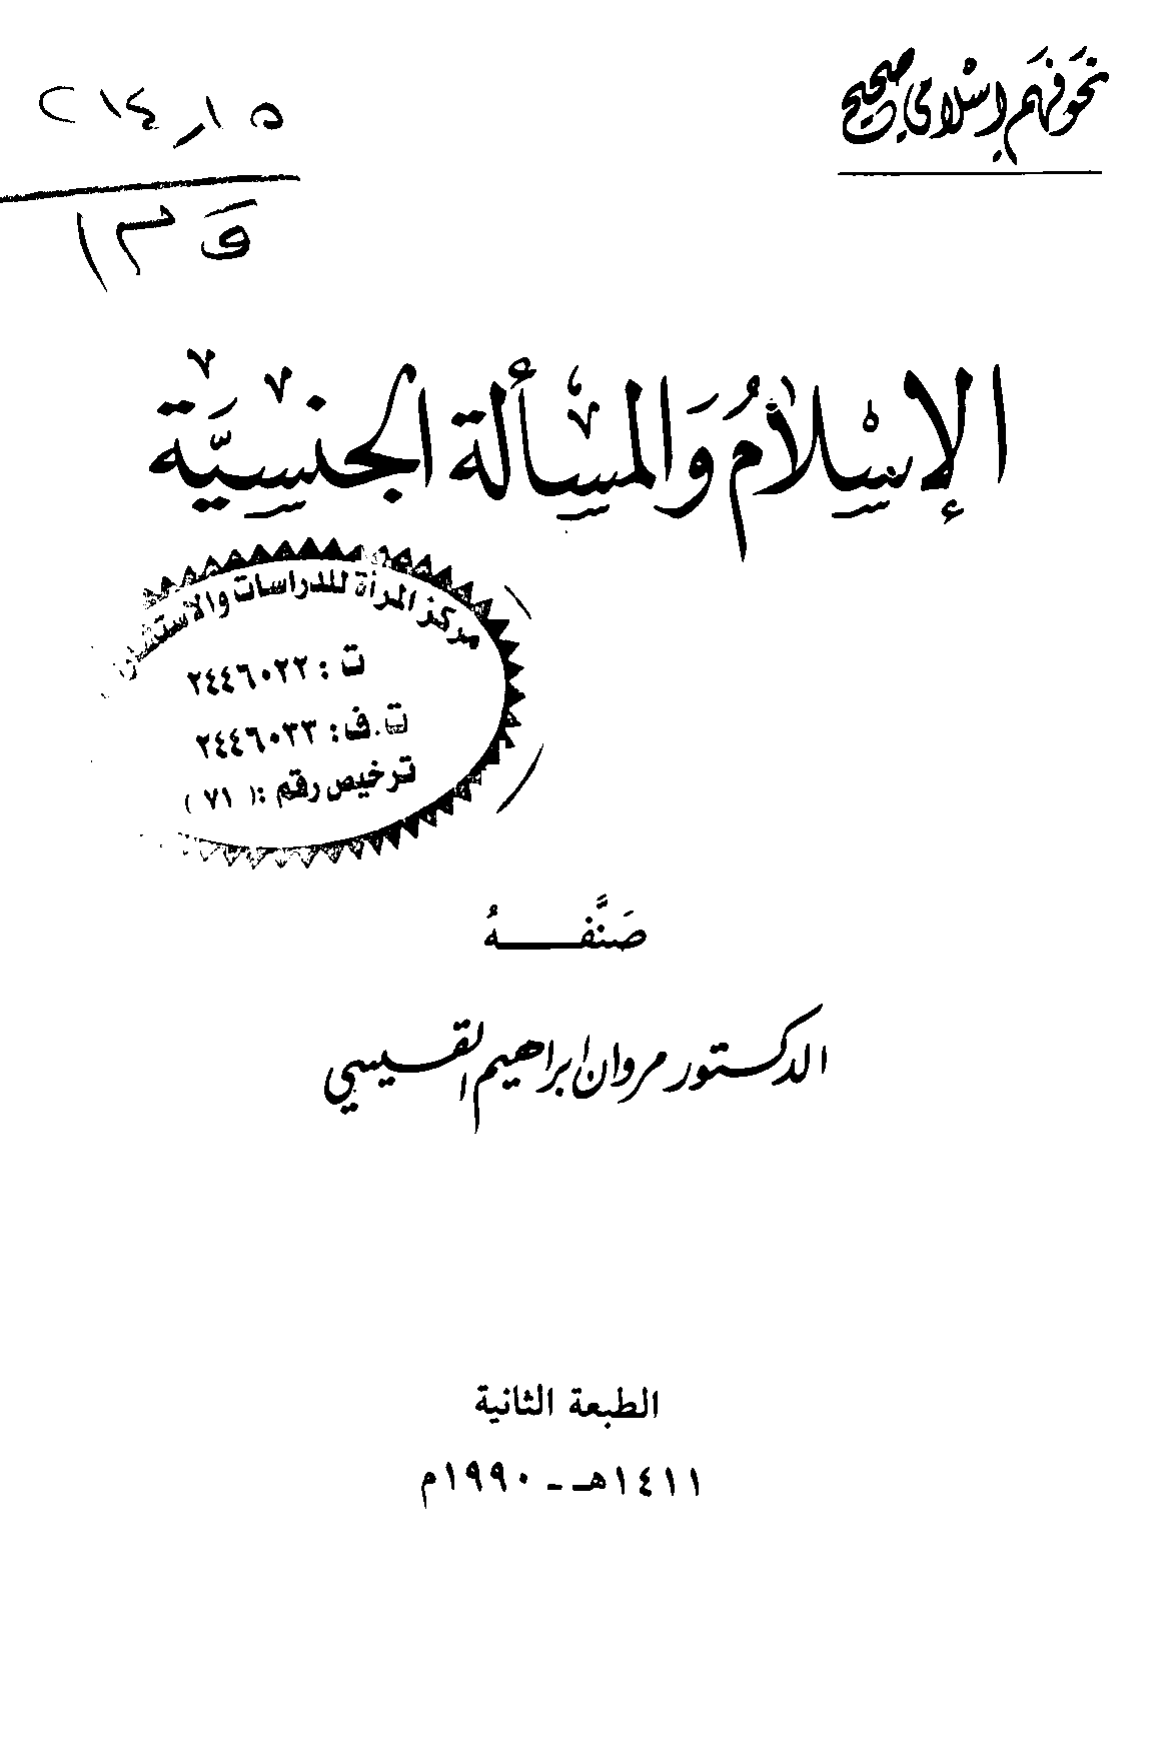 نحو فهم إسلامي صحيح
الإسْلامُ وَالمسألة الجنسِيَّة
مركز المرأة للدراسات
ت : ٢٤٤٦٠٢٢
ت.ف: ٢٤٤٦٠٣٣
ترخيص رقم :( ٧١ )
صَنَّفـــــهُ
الدكتور مروان ابراهيم القيسي
الطبعة الثانية
١٤١١هـ - ١٩٩٠م